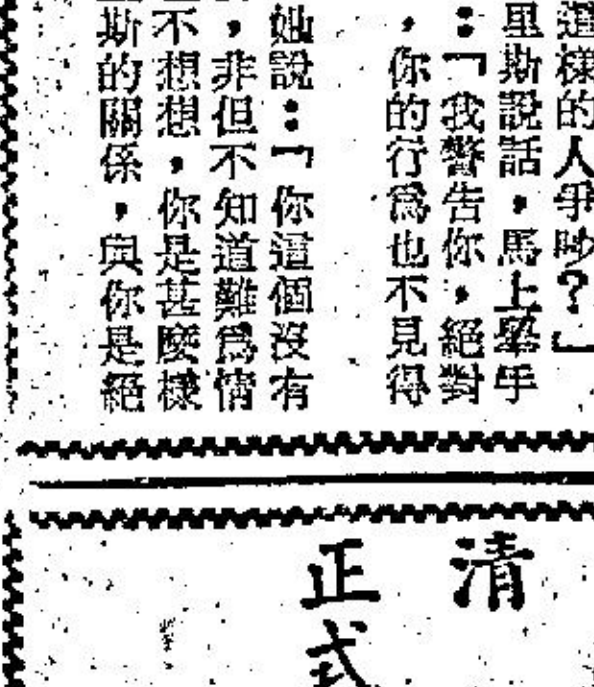 這樣的人爭吵？」
里斯說話，馬上舉手
：「我警告你，絕對
，你的行爲也不見得
她說：「你這個沒有
，非但不知道難爲情
不想想，你是甚麼樣
斯的關係，與你是絕
清
正式